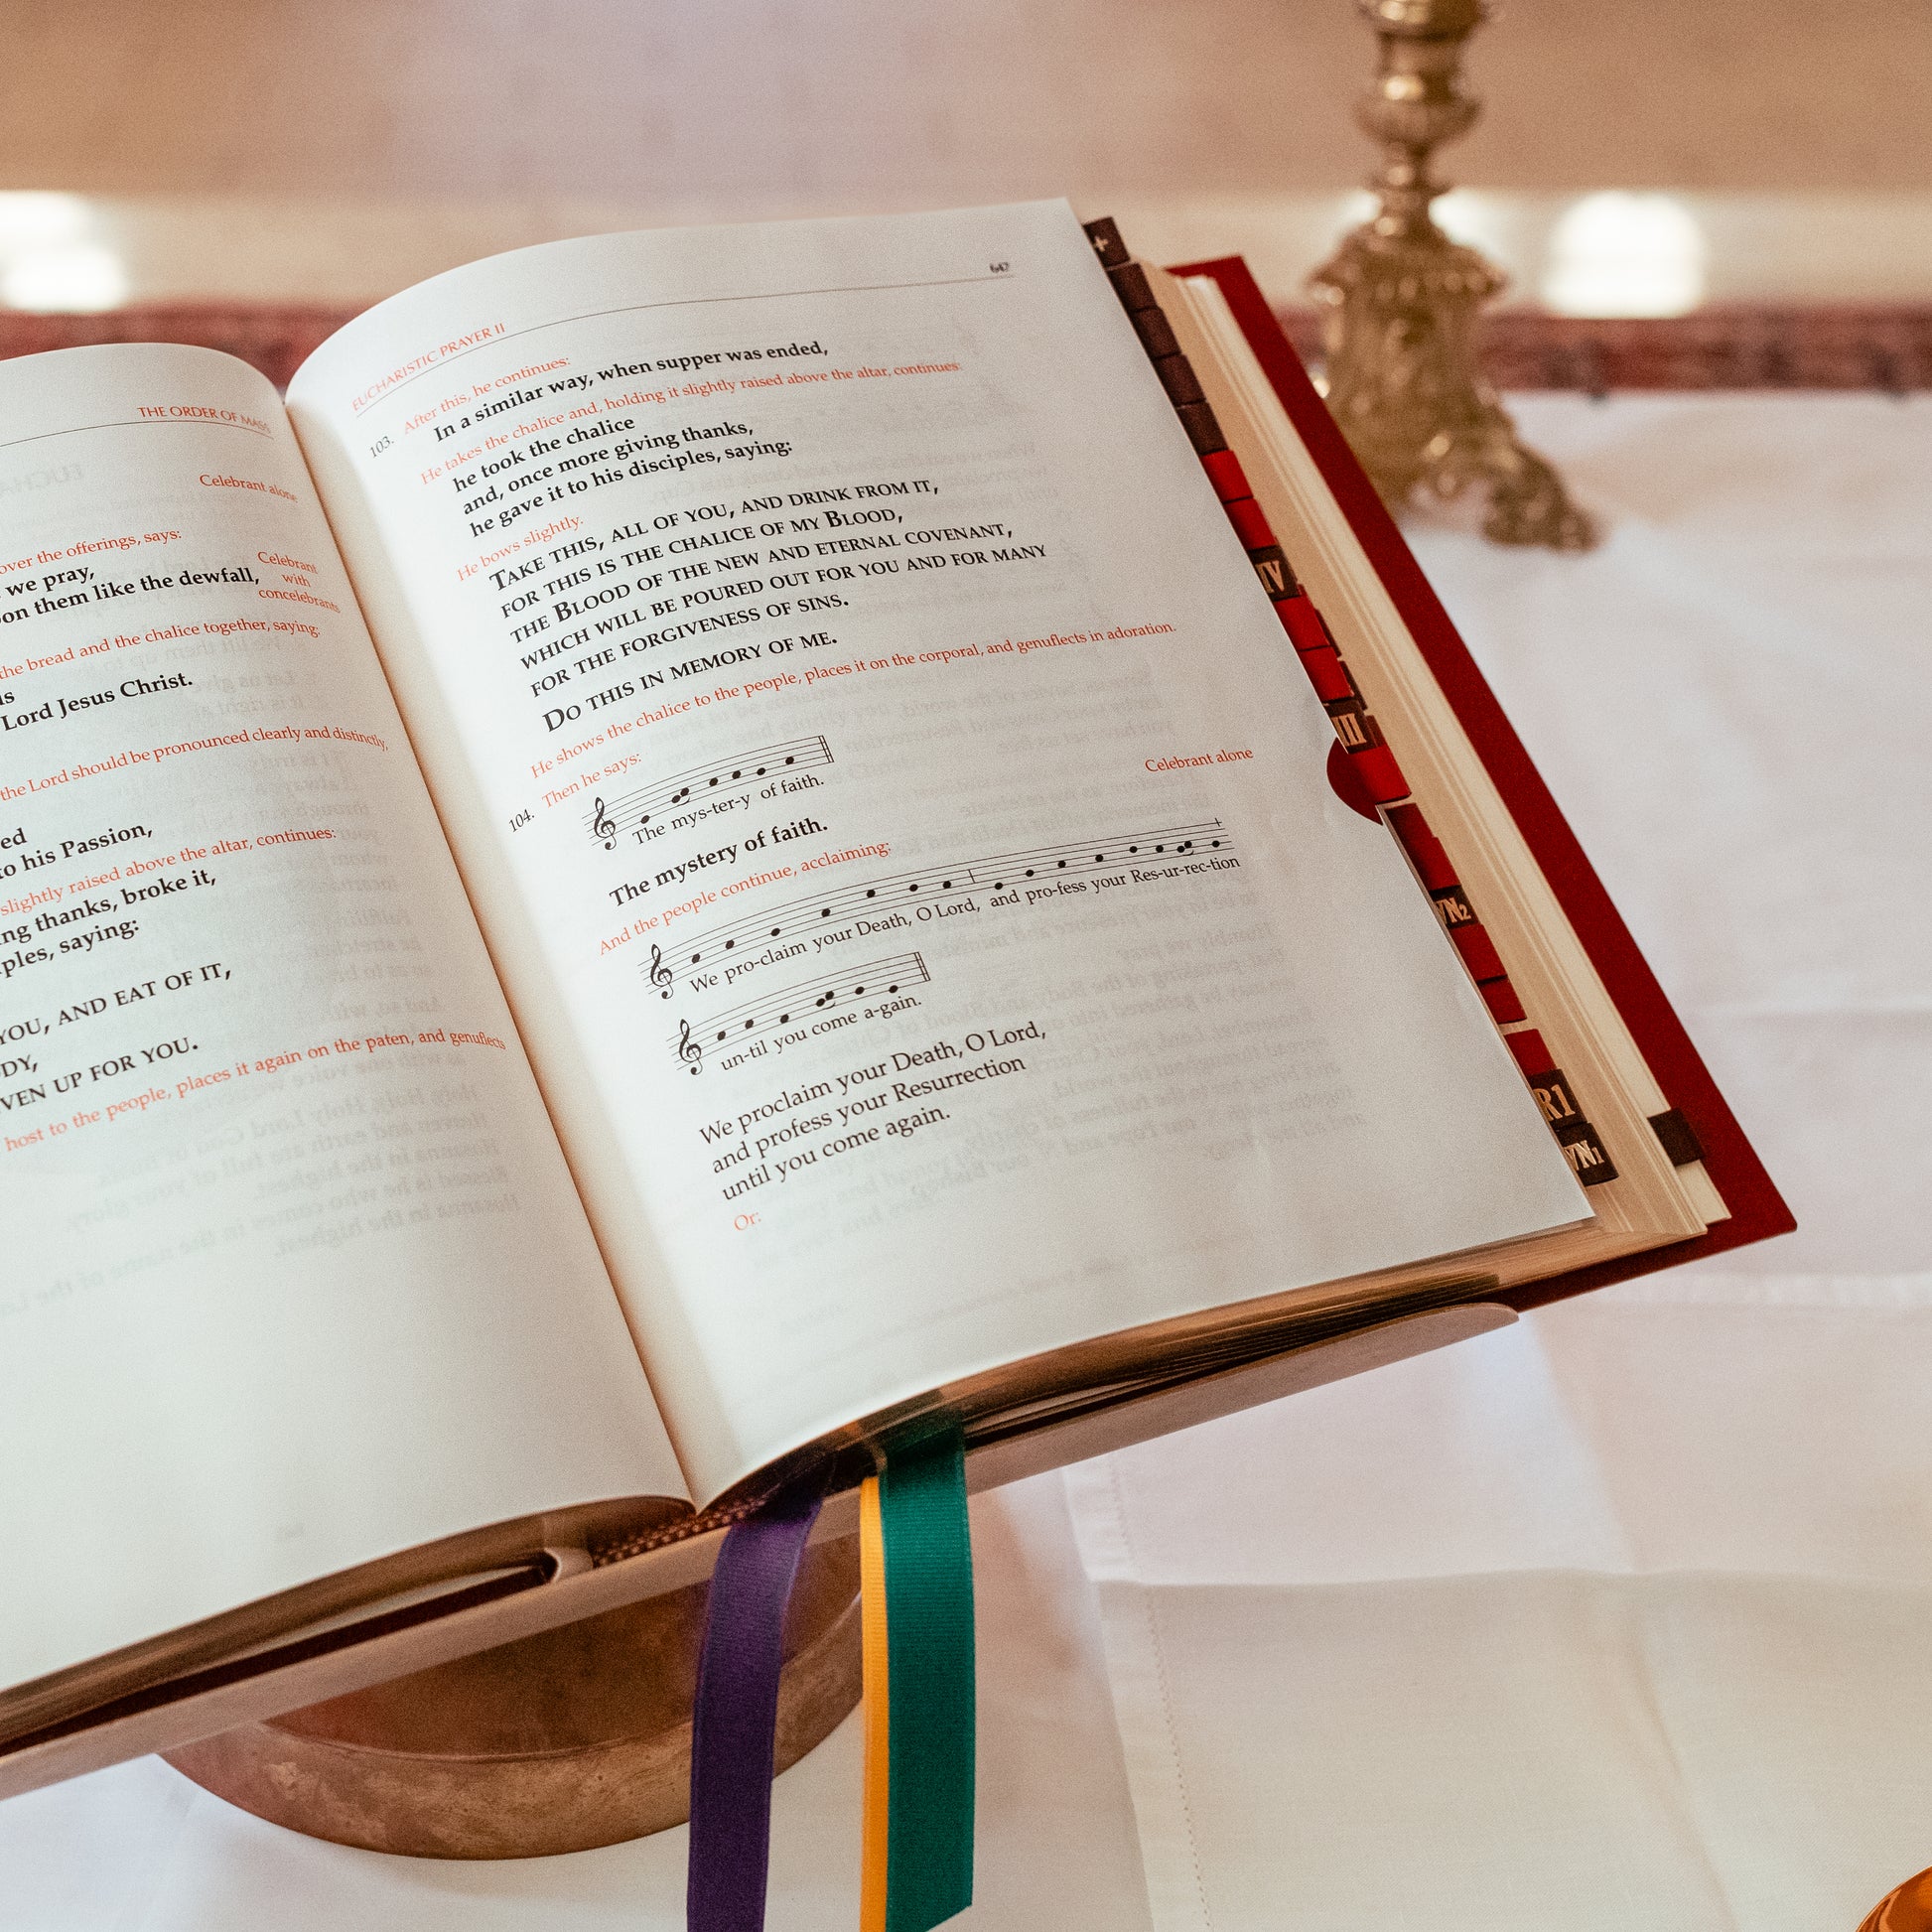 THE ORDER OF MASS
Celebrant alone
over the offerings, says:
we pray,
on them like the dewfall,
Celebrant
with
concelebrants
the bread and the chalice together, saying:
Lord Jesus Christ.
the Lord should be pronounced clearly and distinctly,
ed
to his Passion,
slightly raised above the altar, continues:
ng thanks, broke it,
ples, saying:
YOU, AND EAT OF IT,
DY,
VEN UP FOR YOU.
host to the people, places it again on the paten, and genuflects
EUCHARISTIC PRAYER II
647
103. After this, he continues:
In a similar way, when supper was ended,
He takes the chalice and, holding it slightly raised above the altar, continues:
he took the chalice
and, once more giving thanks,
he gave it to his disciples, saying:
He bows slightly.
TAKE THIS, ALL OF YOU, AND DRINK FROM IT,
FOR THIS IS THE CHALICE OF MY BLOOD,
THE BLOOD OF THE NEW AND ETERNAL COVENANT,
WHICH WILL BE POURED OUT FOR YOU AND FOR MANY
FOR THE FORGIVENESS OF SINS.
DO THIS IN MEMORY OF ME.
He shows the chalice to the people, places it on the corporal, and genuflects in adoration.
104. Then he says:
Celebrant alone
The mys-ter-y of faith.
The mystery of faith.
And the people continue, acclaiming:
We pro-claim your Death, O Lord, and pro-fess your Res-ur-rec-tion
un-til you come a-gain.
We proclaim your Death, O Lord,
and profess your Resurrection
until you come again.
Or:
IV
III
VN2
R1
VN1